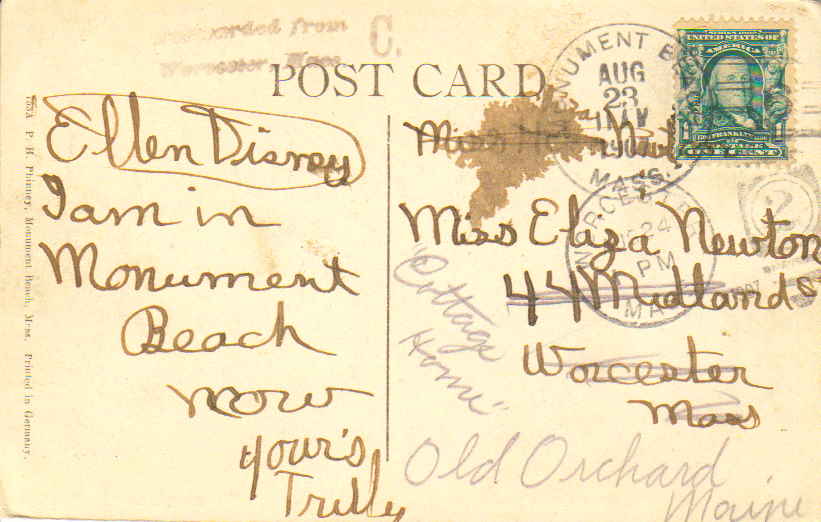 Forwarded from
Worcester, Mass.
C.
POST CARD
Ellen Disney
I am in
Monument
Beach
now
your's
Trilly
MONUMENT BEACH
AUG
23
1907
MASS.
SERIES 1902
UNITED STATES OF
AMERICA
FRANKLIN
Miss
Miss Eliza Newton
44 Midland St
Worcester
Mass
"Cottage
Home"
Old Orchard
Maine
WORCESTER
24
PM
MA
1907
2
P. H. Phinney, Monument Beach, Mass. Printed in Germany.